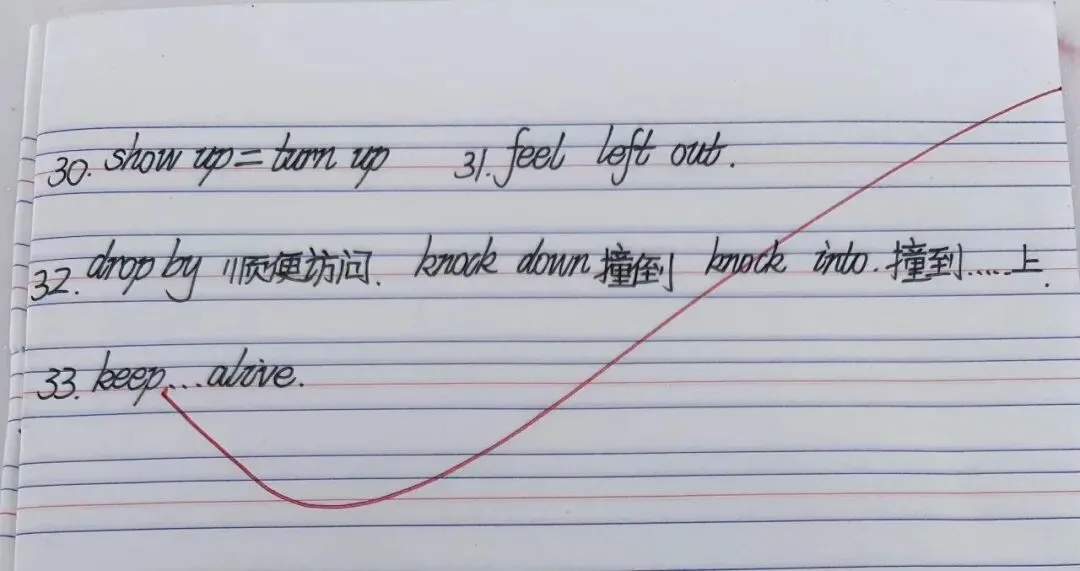 30. show up = turn up 31. feel left out.
32. drop by 顺便访问. knock down 撞倒 knock into. 撞到......上.
33. keep... alive.